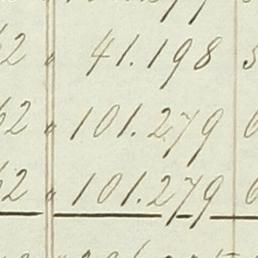 62 " 41.198
62 " 101.279
62 " 101.279